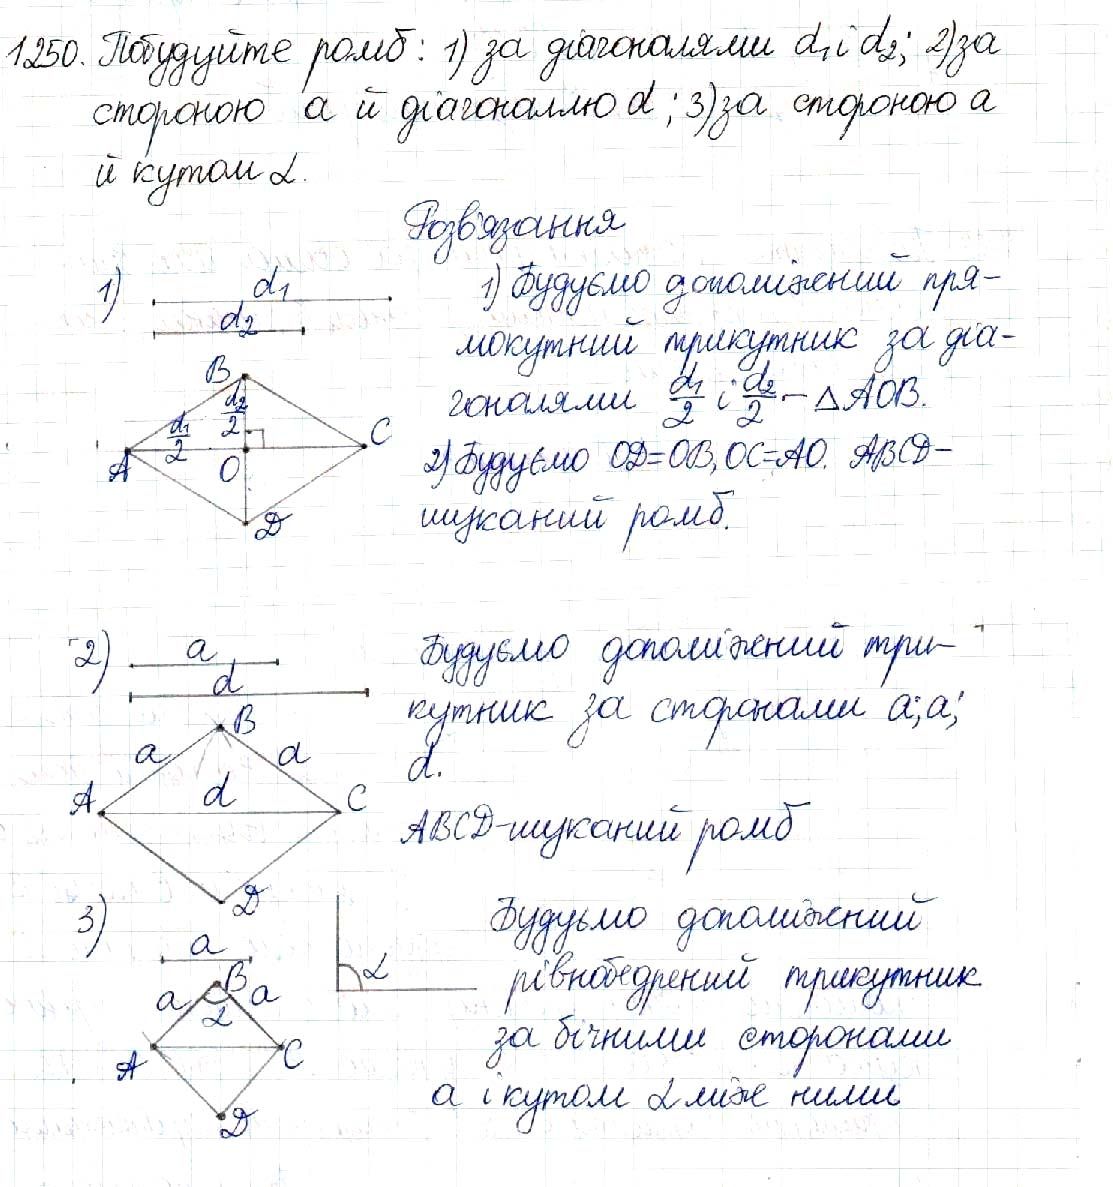 1250. Побудуйте ромб: 1) за діагоналями d₁ і d₂; 2) за
стороною a й діагоналлю d; 3) за стороною a
й кутом α.
Розв'язання
1)
d₁
d₂
B
d₂/2
d₁/2
A
O
C
D
1) Будуємо допоміжений пря-
мокутний трикутник за діа-
гоналями d₁/2 і d₂/2 - △AOB.
2) Будуємо OD=OB, OC=AO. ABCD-
шуканий ромб.
2)
a
d
B
a
a
A
d
C
D
Будуємо допоміжений три-
кутник за сторонами a; a;
d.
ABCD-шуканий ромб
3)
a
B
a
a
α
A
C
D
α
Будуьмо допоміжений
рівнобедрений трикутник
за бічними сторонами
a і кутом α між ними